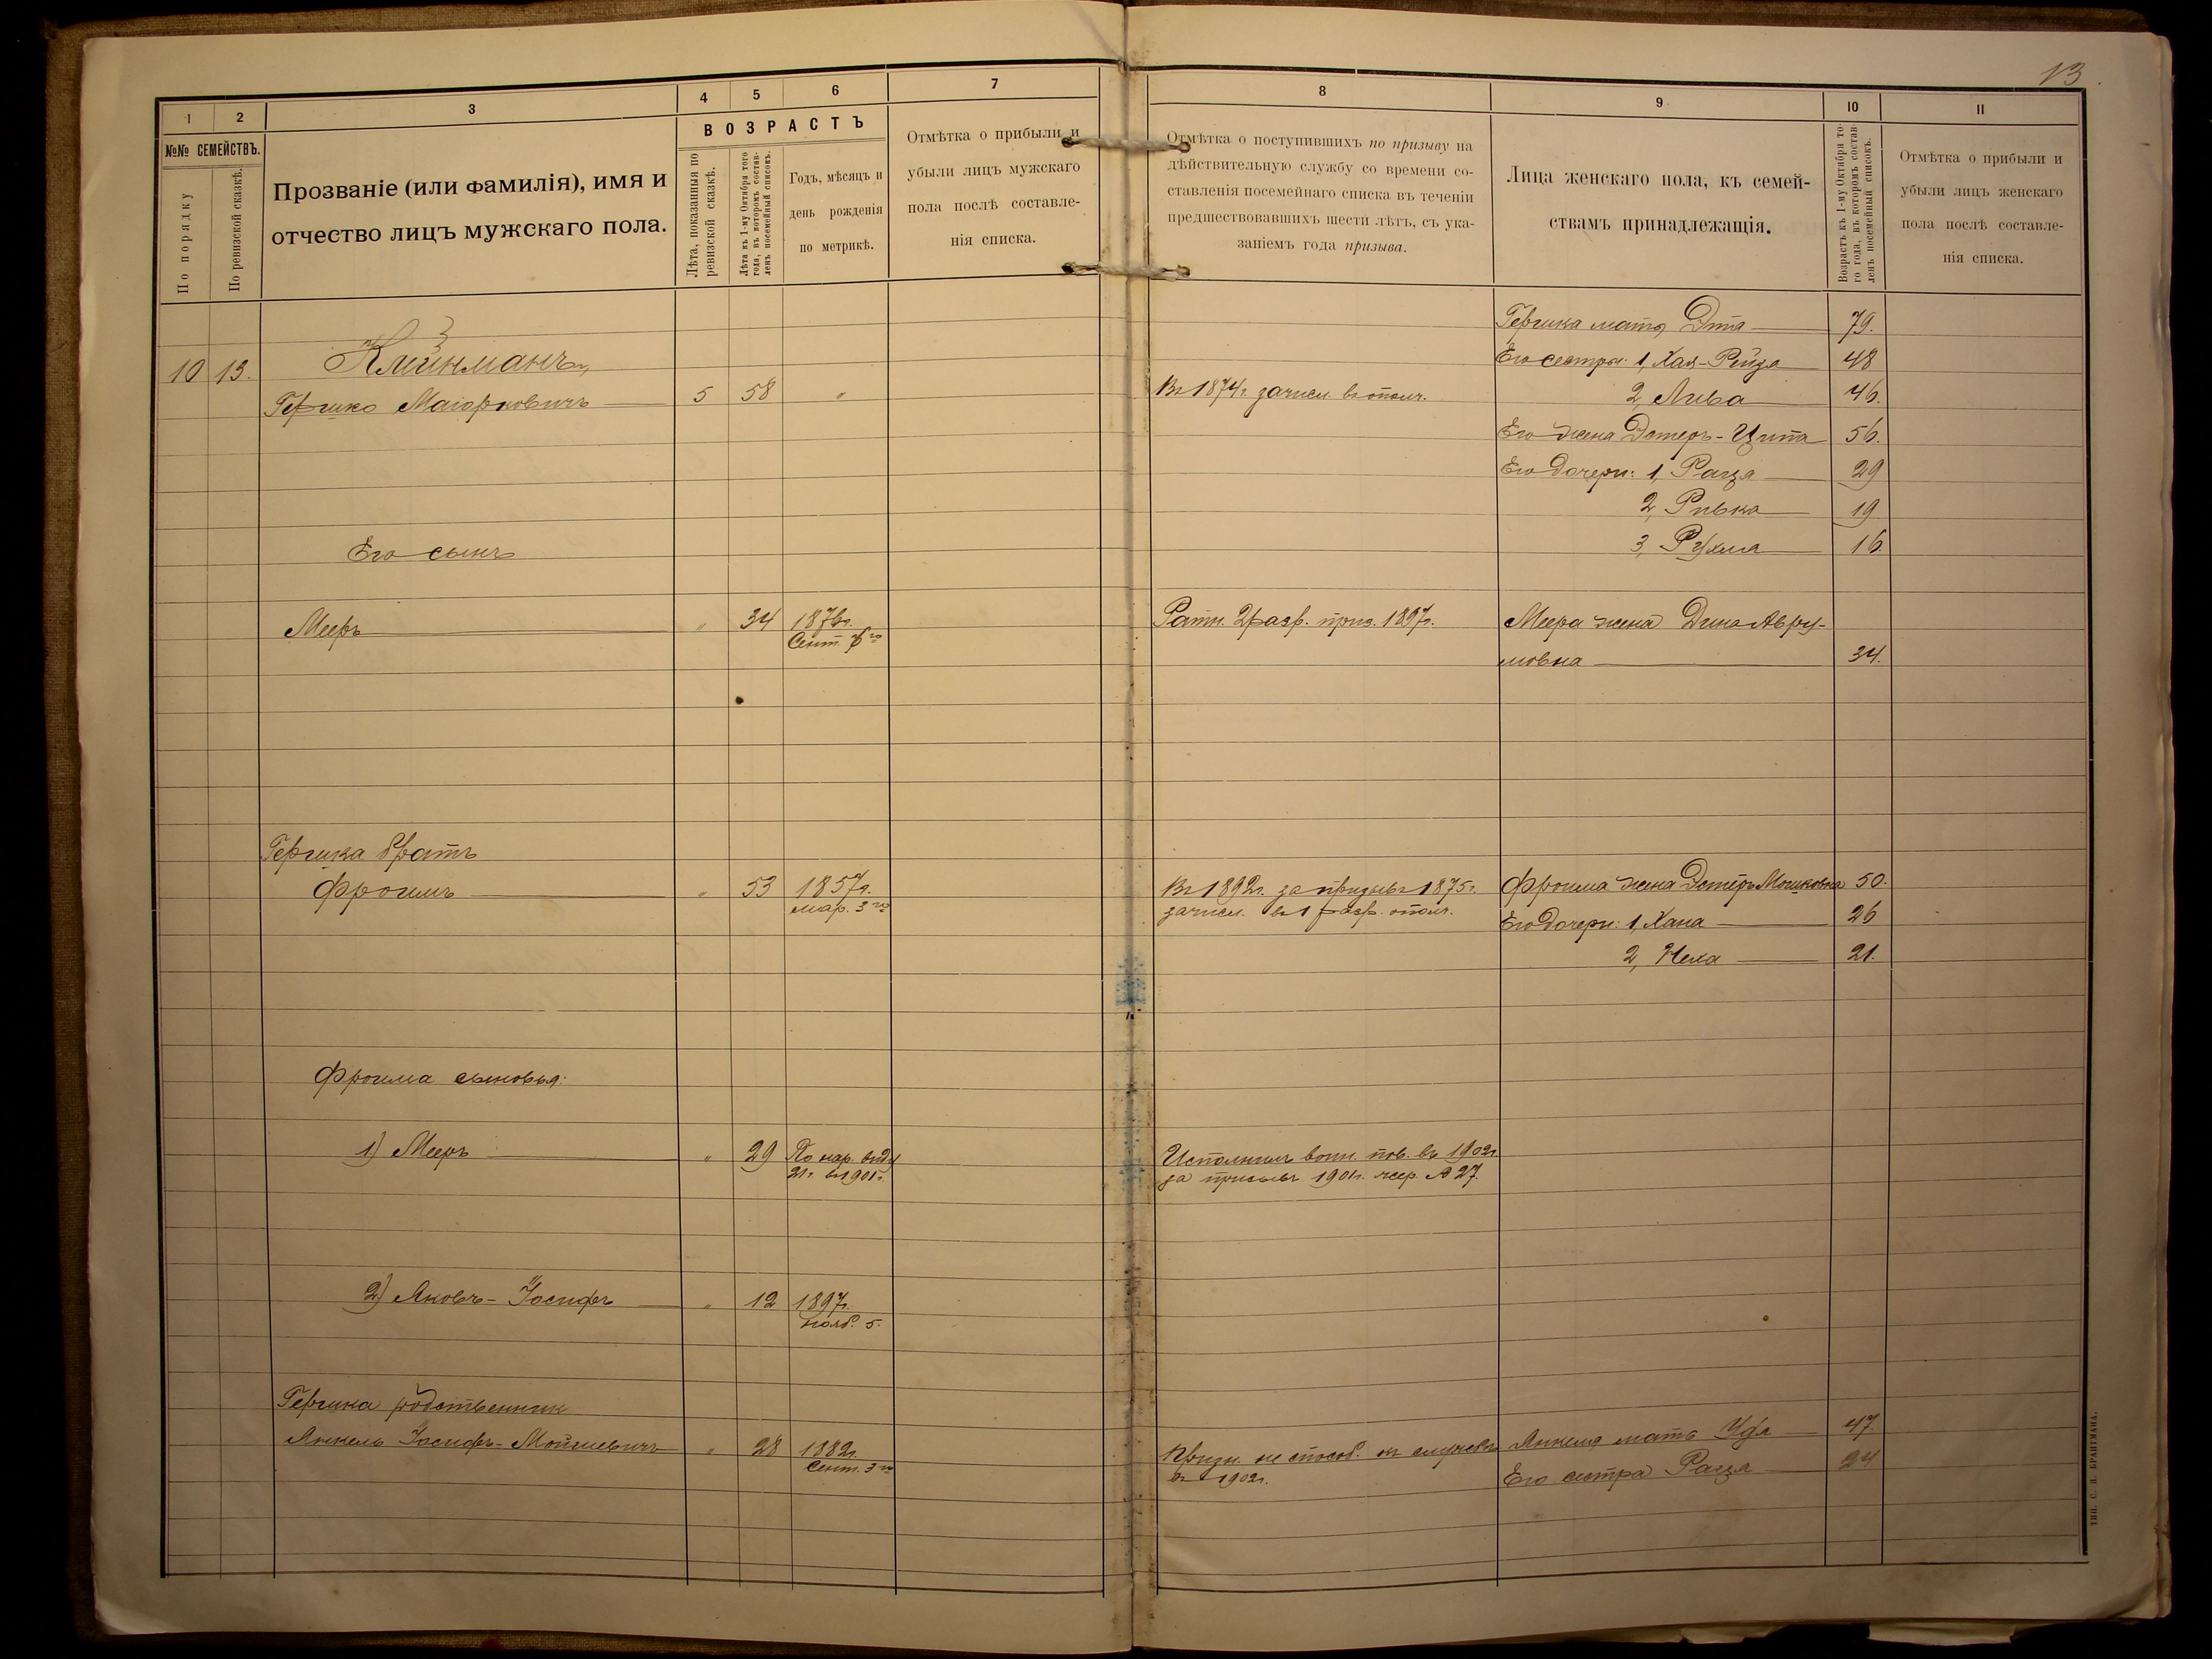 13
1 2 3 4 5 6 7
№№ СЕМЕЙСТВЪ.
По порядку
По ревизской сказкѣ.
Прозваніе (или фамилія), имя и
отчество лицъ мужскаго пола.
ВОЗРАСТЪ
Лѣта, показанныя по
ревизской сказкѣ.
Лѣта къ 1-му Октября того
года, въ которомъ состав-
ленъ посемейный списокъ.
Годъ, мѣсяцъ и
день рожденія
по метрикѣ.
Отмѣтка о прибыли и
убыли лицъ мужскаго
пола послѣ составле-
нія списка.
10 13. Клейнманъ
Гершко Маіорковичъ 5 58 "
Его сынъ
Мееръ " 34 1876г.
Сент.
Гершка братъ
Фроимъ " 53 1857г.
мар. 3го
Фроима сыновья:
1) Мееръ " 29 По нар. виду
21г. въ 1901г.
2) Яковъ-Іосифъ " 12 1897г.
нояб. 5.
Гершка родственник
Янкель Іосифъ-Мойшевичъ " 28 1882г.
Сент. 3го
8 9 10 11
Отмѣтка о поступившихъ по призыву на
дѣйствительную службу со времени со-
ставленія посемейнаго списка въ теченіи
предшествовавшихъ шести лѣтъ, съ ука-
заніемъ года призыва.
Лица женскаго пола, къ семей-
ствамъ принадлежащія.
Возрастъ къ 1-му Октября то-
го года, въ которомъ состав-
ленъ посемейный списокъ.
Отмѣтка о прибыли и
убыли лицъ женскаго
пола послѣ составле-
нія списка.
Гершка мать Эта 79.
Его сестры: 1, Хая-Рейза 48
Въ 1874г. зачисл. въ ополч. 2, Либа 46.
Его жена Эстеръ-Ципа 56.
Его дочери: 1, Раиза 29
2, Ривка 19
3, Рухля 16.
Ратн. 2 разр. приз. 1897г. Меера жена Дина Авру-
мовна 34.
Въ 1892г. за призывъ 1875г. Фроима жена Эстеръ Мошковна 50.
зачисл. въ 1 разр. ополч. Его дочери: 1, Хана 26
2, Неха 21.
Исполнилъ воин. пов. въ 1902г.
за призывъ 1901г. жер. № 27.
Призн. не способ. къ службѣ Янкеля мать 47.
въ 1902г. Его сестра Раиза 24
ТИП. С. Н. БРАНТМАНА.